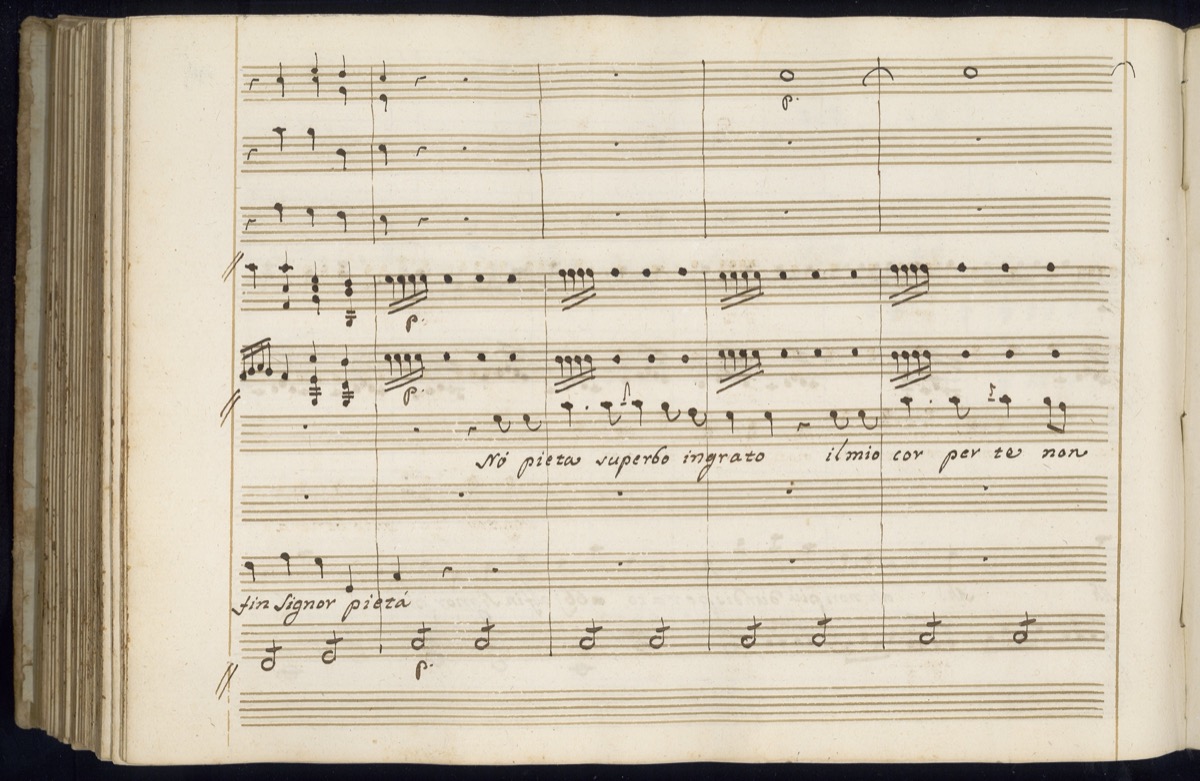 p.
p.
p.
Nó pieta superbo ingrato il mio cor per te non
fin Signor pietá
p.